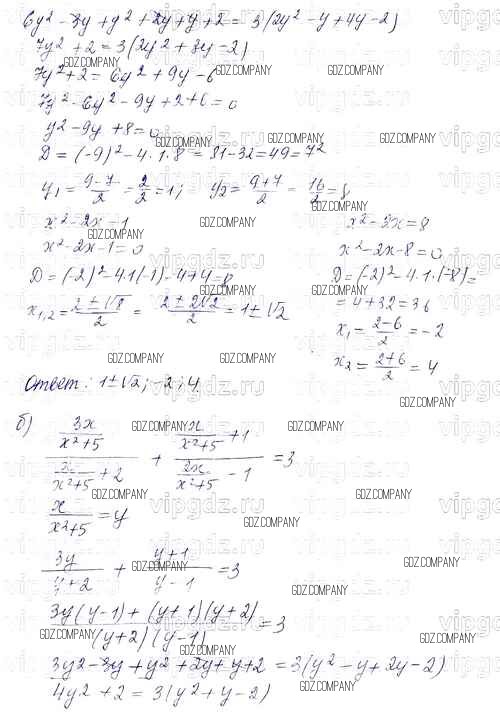 6y² - 3y + y² + 2y + y + 2 = 3(2y² - y + 4y - 2)
7y² + 2 = 3(2y² + 3y - 2)
7y² + 2 = 6y² + 9y - 6
7y² - 6y² - 9y + 2 + 6 = 0
y² - 9y + 8 = 0
D = (-9)² - 4·1·8 = 81 - 32 = 49 = 7²
y₁ = (9-7)/2 = 2/2 = 1; y₂ = (9+7)/2 = 16/2 = 8
x² - 2x = 1
x² - 2x - 1 = 0
D = (-2)² - 4·1·(-1) = 4 + 4 = 8
x₁,₂ = (2 ± √8)/2 = (2 ± 2√2)/2 = 1 ± √2
x² - 2x = 8
x² - 2x - 8 = 0
D = (-2)² - 4·1·(-8) =
= 4 + 32 = 36
x₁ = (2-6)/2 = -2
x₂ = (2+6)/2 = 4
Ответ: 1±√2; -2; 4.
б) (3x/(x²+5))/(x/(x²+5) + 2) + (x/(x²+5) + 1)/(x/(x²+5) - 1) = 3
x/(x²+5) = y
3y/(y+2) + (y+1)/(y-1) = 3
(3y(y-1) + (y+1)(y+2))/((y+2)(y-1)) = 3
3y² - 3y + y² + 2y + y + 2 = 3(y² - y + 2y - 2)
4y² + 2 = 3(y² + y - 2)
GDZ.COMPANY
vipgdz.ru